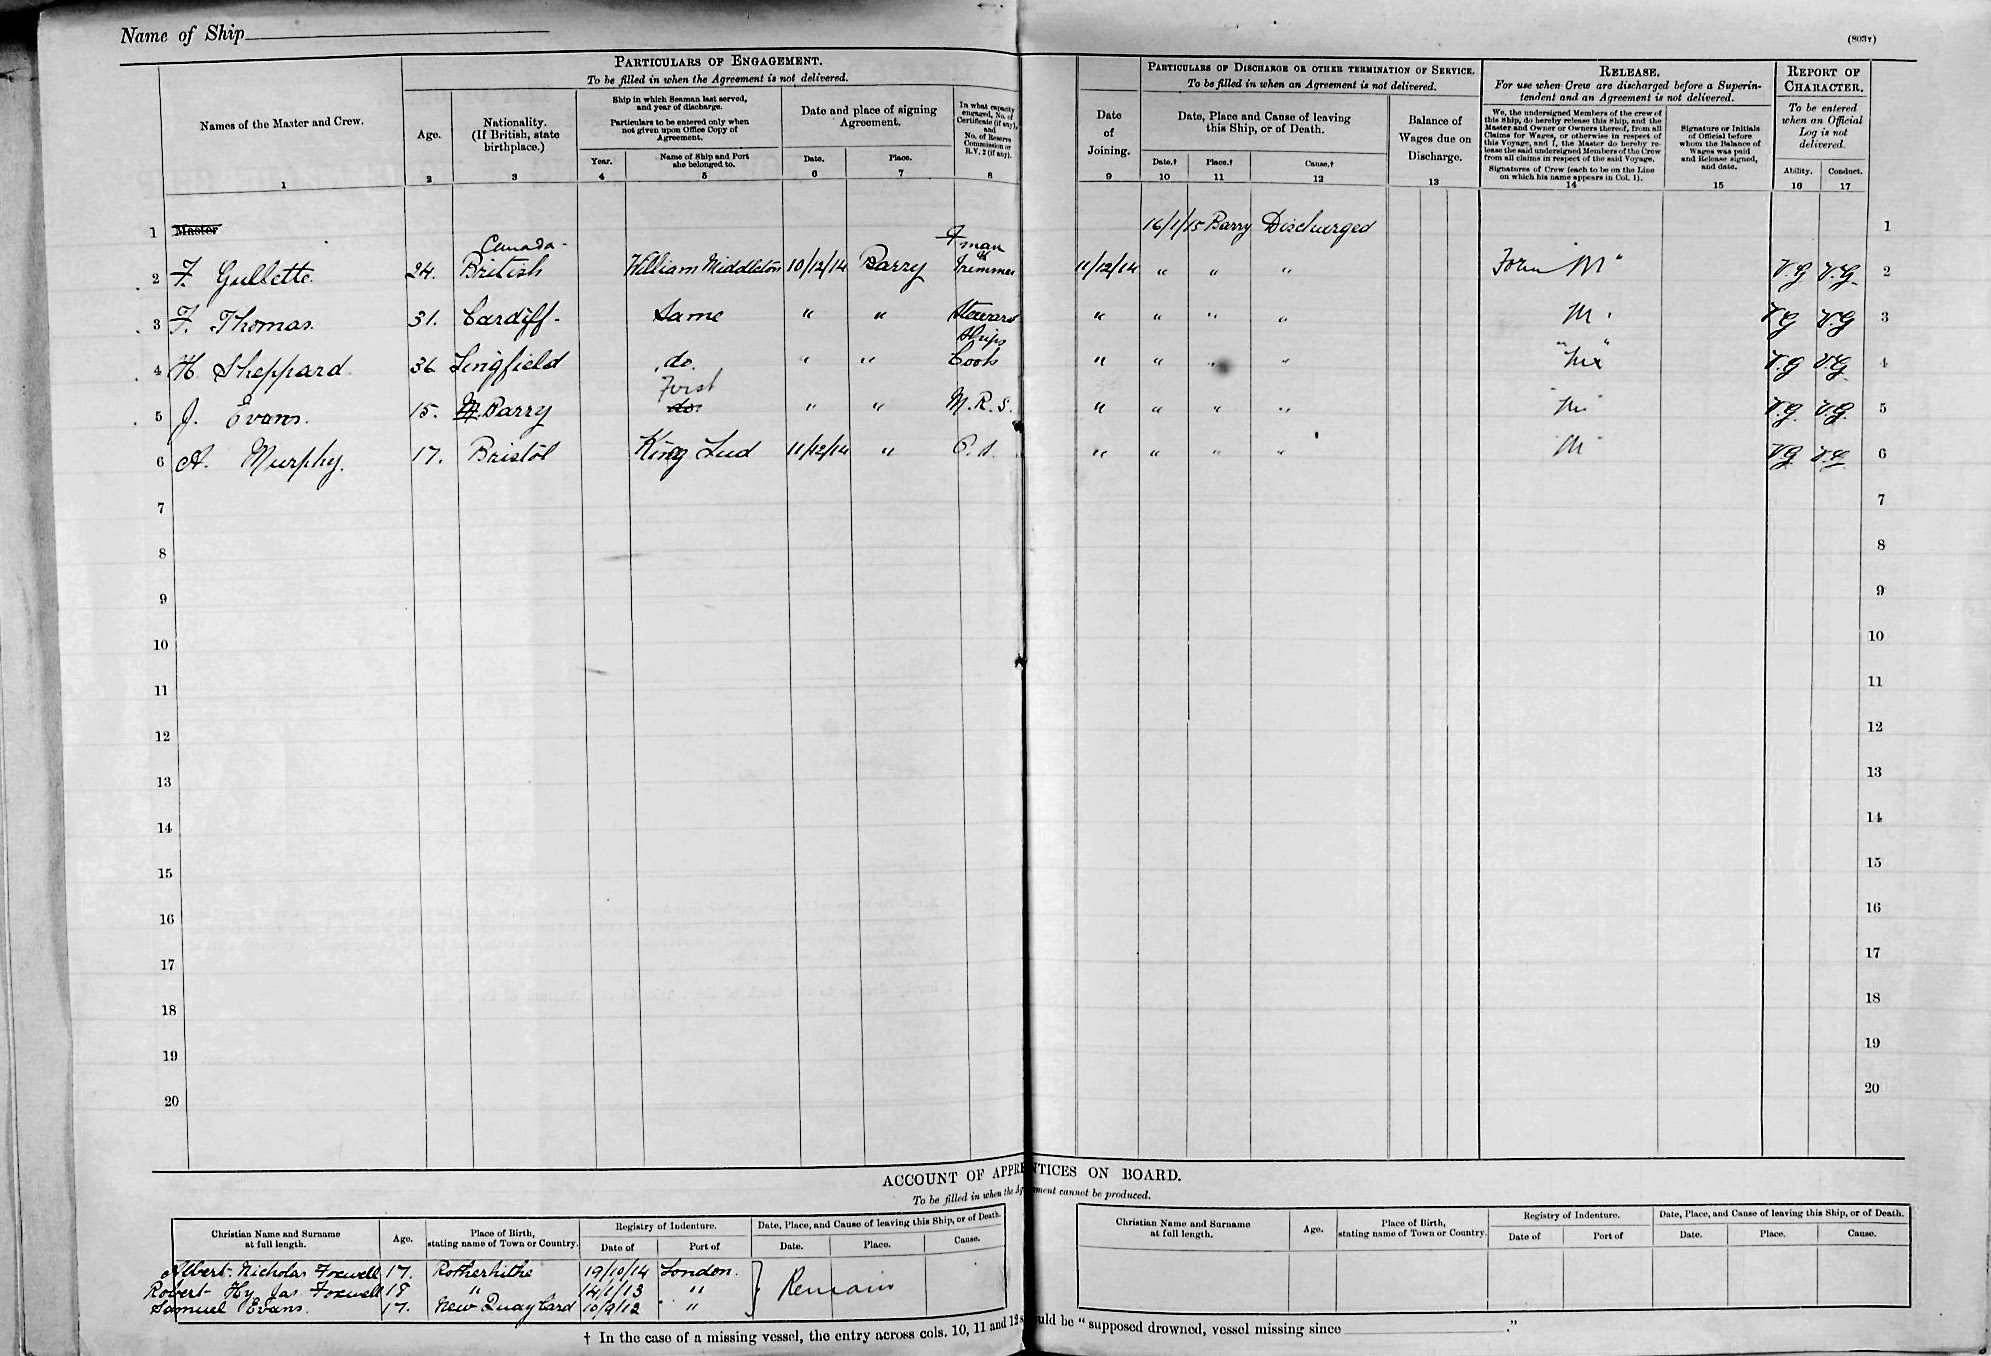 Name of Ship
(803v)
PARTICULARS OF ENGAGEMENT.
To be filled in when the Agreement is not delivered.
PARTICULARS OF DISCHARGE OR OTHER TERMINATION OF SERVICE.
To be filled in when an Agreement is not delivered.
RELEASE.
For use when Crew are discharged before a Superin-
tendent and an Agreement is not delivered.
REPORT OF
CHARACTER.
To be entered
when an Official
Log is not
delivered.
Names of the Master and Crew.
Age.
Nationality.
(If British, state
birthplace.)
Ship in which Seaman last served,
and year of discharge.
Particulars to be entered only when
not given upon Office Copy of
Agreement.
Year.
Name of Ship and Port
she belonged to.
Date and place of signing
Agreement.
Date.
Place.
In what capacity
engaged, No. of
Certificate (if any),
and
No. of Reserve
Commission or
R.V. 2 (if any).
Date
of
Joining.
Date, Place and Cause of leaving
this Ship, or of Death.
Date.†
Place.†
Cause.†
Balance of
Wages due on
Discharge.
We, the undersigned Members of the crew of
this Ship, do hereby release this Ship, and the
Master and Owner or Owners thereof, from all
Claims for Wages, or otherwise in respect of
this Voyage, and I, the Master do hereby re-
lease the said undersigned Members of the Crew
from all claims in respect of the said Voyage.
Signatures of Crew (each to be on the Line
on which his name appears in Col. 1).
Signature or Initials
of Official before
whom the Balance of
Wages was paid
and Release signed,
and date.
Ability.
Conduct.
1 2 3 4 5 6 7 8 9 10 11 12 13 14 15 16 17
1 Master 16/1/15 Barry Discharged 1
Canada - Fman &
2 F. Gullette. 24. British William Middleton 10/12/14 Barry Trimmer 11/12/14 " " " Form "M" V.G V.G. 2
3 F. Thomas. 31. Cardiff. Same " " Steward " " " " M. V G V.G 3
Ships
4 H Sheppard 36 Lingfield do. " " Cook " " " " "M" V.G V.G. 4
First
5 J. Evans. 15. Barry do. " " M.R.S. " " " " "M" V.G. V.G. 5
6 A. Murphy. 17. Bristol King Lud 11/12/14 " O.S. " " " " M V.G. V.G 6
7 7
8 8
9 9
10 10
11 11
12 12
13 13
14 14
15 15
16 16
17 17
18 18
19 19
20 20
ACCOUNT OF APPRENTICES ON BOARD.
To be filled in when the Agreement cannot be produced.
Christian Name and Surname
at full length.
Age.
Place of Birth,
stating name of Town or Country.
Registry of Indenture.
Date of
Port of
Date, Place, and Cause of leaving this Ship, or of Death.
Date.
Place.
Cause.
Christian Name and Surname
at full length.
Age.
Place of Birth,
stating name of Town or Country.
Registry of Indenture.
Date of
Port of
Date, Place, and Cause of leaving this Ship, or of Death.
Date.
Place.
Cause.
Albert Nicholas Foxwell 17. Rotherhithe 19/10/14 London.
Robert Hy Jas Foxwell 18 " 14/1/13 " Remain
Samuel Evans. 17. New Quay Card 10/9/12 "
† In the case of a missing vessel, the entry across cols. 10, 11 and 12 should be "supposed drowned, vessel missing since ."